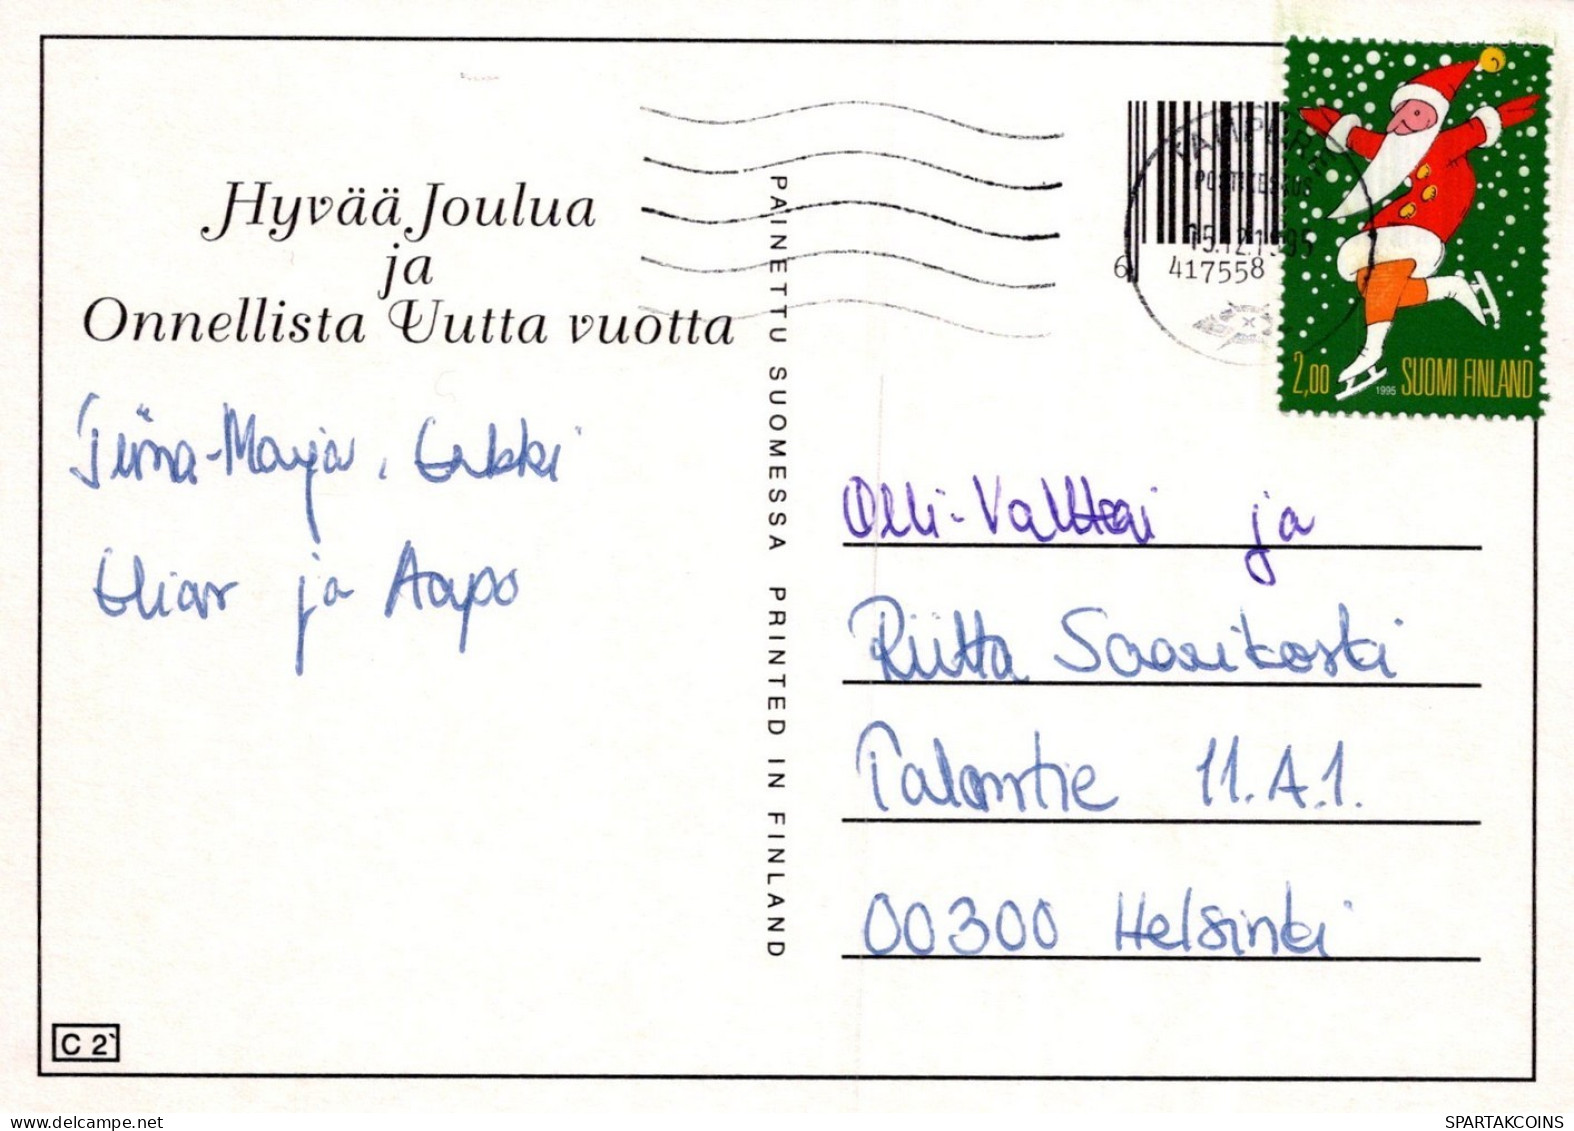 Hyvää Joulua
ja
Onnellista Uutta vuotta
Tiina-Marja, Erkki
Elias ja Aapo
C 2
PAINETTU SUOMESSA PRINTED IN FINLAND
TAMPERE
POSTIKESKUS
15.12.1995
6 417558
2,00 1995 SUOMI FINLAND
Olli-Valtteri ja
Riitta Saarikoski
Talontie 11.A.1.
00300 Helsinki
SPARTAKCOINS